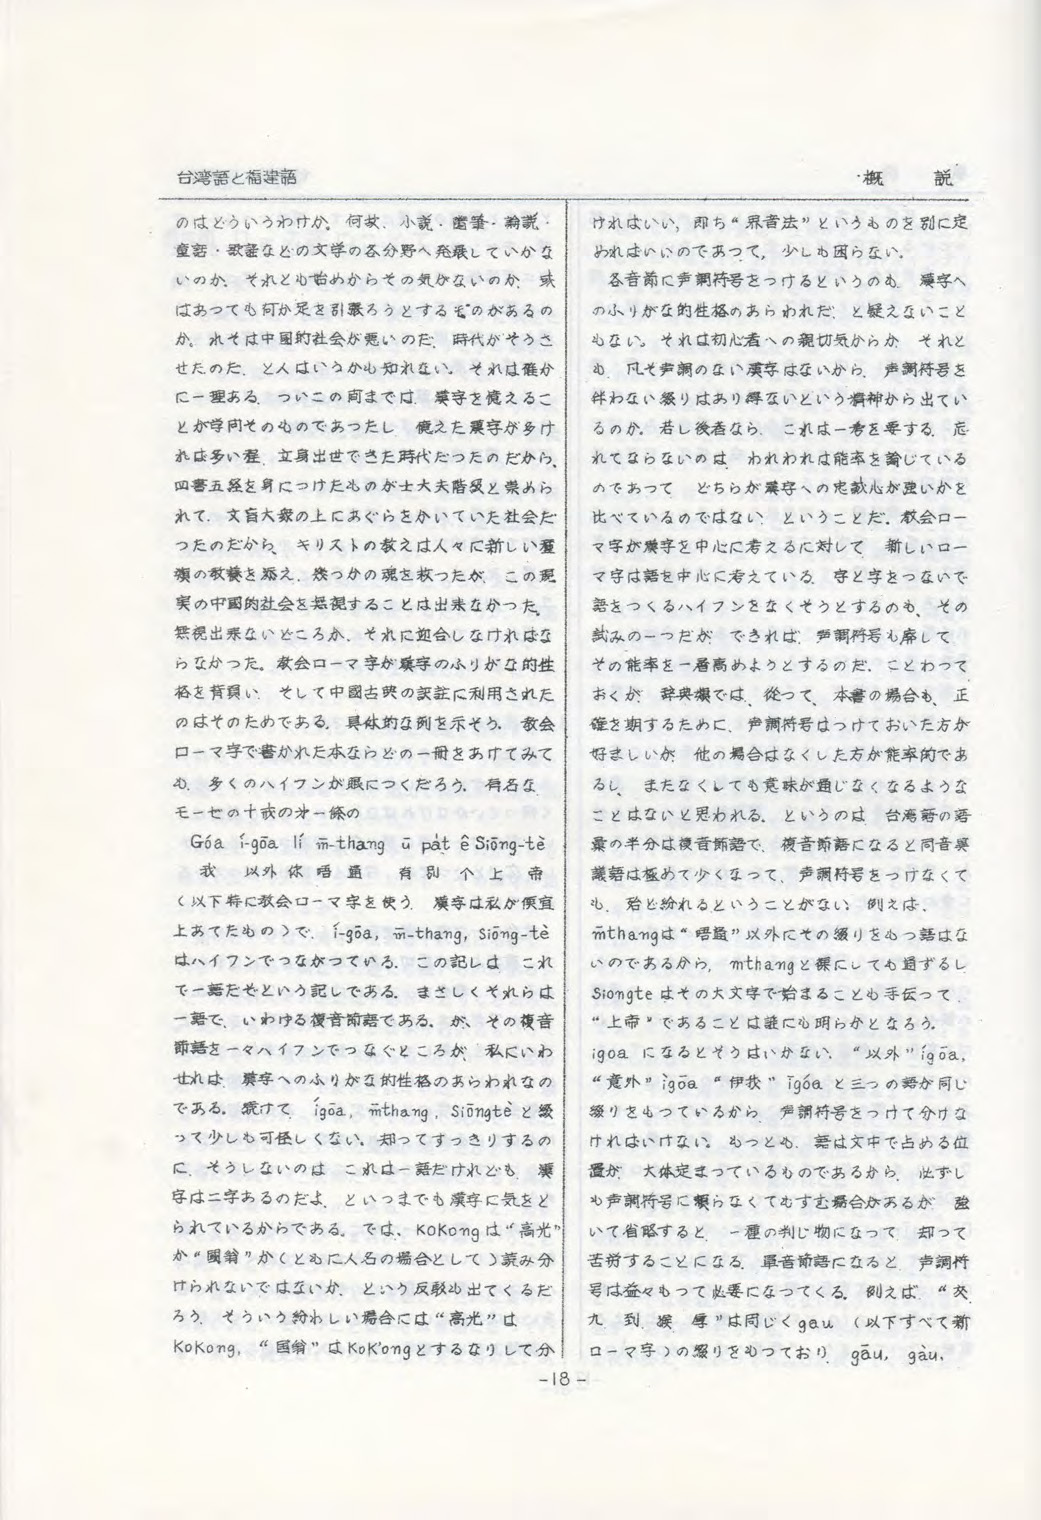 台湾語と福建語
概　説
のはどういうわけか。何故、小説・随筆・論説・
童話・歌謡などの文学の各分野へ発展していかな
いのか、それとも始めからその気がないのか、或
はあっても何か足を引張ろうとするものがあるの
か。れそは中國的社会が悪いのだ、時代がそうさ
せたのだ、と人はいうかも知れない。それは確か
に一理ある。ついこの間までは、漢字を憶えるこ
とが学问そのものであったし、憶えた漢字が多け
れば多い程、立身出世できた時代だつたのだから、
四書五経を身につけたものが士大夫階級と崇めら
れて、文盲大衆の上にあぐらをかいていた社会だ
つたのだから、キリストの教えは人々に新しい種
類の教養を添え、幾つかの魂を救つたが、この現
実の中國的社会を無視することは出来なかつた。
無視出来ないどころか、それに迎合しなければな
らなかつた。教会ローマ字が漢字のふりがな的性
格を背負い、そして中國古典の訳註に利用された
のはそのためである。具体的な例を示そう。教会
ローマ字で書かれた本ならどの一冊をあけてみて
も、多くのハイフンが眼につくだろう。有名な
モーセの十戒の才一條の
Góa í-gōa lí m̄-thang ū pa̍t ê Siōng-tè
我　以外 你 唔 通　有 別　个 上　帝
（以下特に教会ローマ字を使う、漢字は私が便宜
上あてたもの）で、í-gōa, m̄-thang, Siōng-tè
はハイフンでつながつている。この記しは、これ
で一語だぞという記しである。まさしくそれらは
一語で、いわゆる複音節語である。が、その複音
節語を一々ハイフンでつなぐところが、私にいわ
せれば、漢字へのふりがな的性格のあらわれなの
である。続けて ígōa, m̄thang, Siōngtè と綴
って少しも可怪しくない。知ってすっきりするの
に、そうしないのは、これは一語だけれども、漢
字は二字あるのだよ、といつまでも漢字に気をと
られているからである。では、KoKongは“高光”
か“國翁”か（ともに人名の場合として）読み分
けられないではないか、という反駁も出てくるだ
ろう。そういう紛わしい場合には“高光”は
KoKong, “国翁”はKoK'ongとするなりして分
ければいい、即ち“界音法”というものを別に定
めればいいのであって、少しも困らない。
各音節に声調符号をつけるというのも、漢字へ
のふりがな的性格のあらわれだ、と疑えないこと
もない。それは初心者への親切気からか、それと
も、凡そ声調のない漢字はないから、声調符号を
伴わない綴りはあり得ないという精神から出てい
るのか。若し後者なら、これは一考を要する。忘
れてならないのは、われわれは能率を論じている
のであって、どちらが漢字への忠誠心が強いかを
比べているのではない、ということだ。教会ロー
マ字が漢字を中心に考えるに対して、新しいロー
マ字は語を中心に考えている。字と字をつないで
語をつくるハイフンをなくそうとするのも、その
試みの一つだが、できれば、声調符号も廃して、
その能率を一層高めようとするのだ。ことわって
おくが、辞典類では、従つて、本書の場合も、正
確を期するために、声調符号はつけておいた方が
好ましいが、他の場合はなくした方が能率的であ
るし、またなくしても意味が通じなくなるような
ことはないと思われる。というのは、台湾語の語
彙の半分は複音節語で、複音節語になると同音異
議語は極めて少くなって、声調符号をつけなくて
も、殆ど紛れるということがない。例えば、
m̄thangは“唔通”以外にその綴りをもつ語はな
いのであるから、mthangと裸にしても通ずるし
Siongte はその大文字で始まることも手伝って、
“上帝”であることは誰にも明らかとなろう。
igoa になるとそうはいかない。“以外”ígōa,
“意外”ìgōa “伊我”īgóa と三つの語が同じ
綴りをもつているから、声調符号をつけて分けな
ければいけない。もっとも、語は文中で占める位
置が、大体定まっているものであるから、必ずし
も声調符号に頼らなくてもすむ場合があるが、強
いて省略すると、一種の判じ物になって、却つて
苦労することになる。單音節語になると、声調符
号は益々もって必要になつてくる。例えば、“交、
九、到、猴、厚”は同じくgau （以下すべて新
ローマ字）の綴りをもつており、gāu, gàu,
-18-